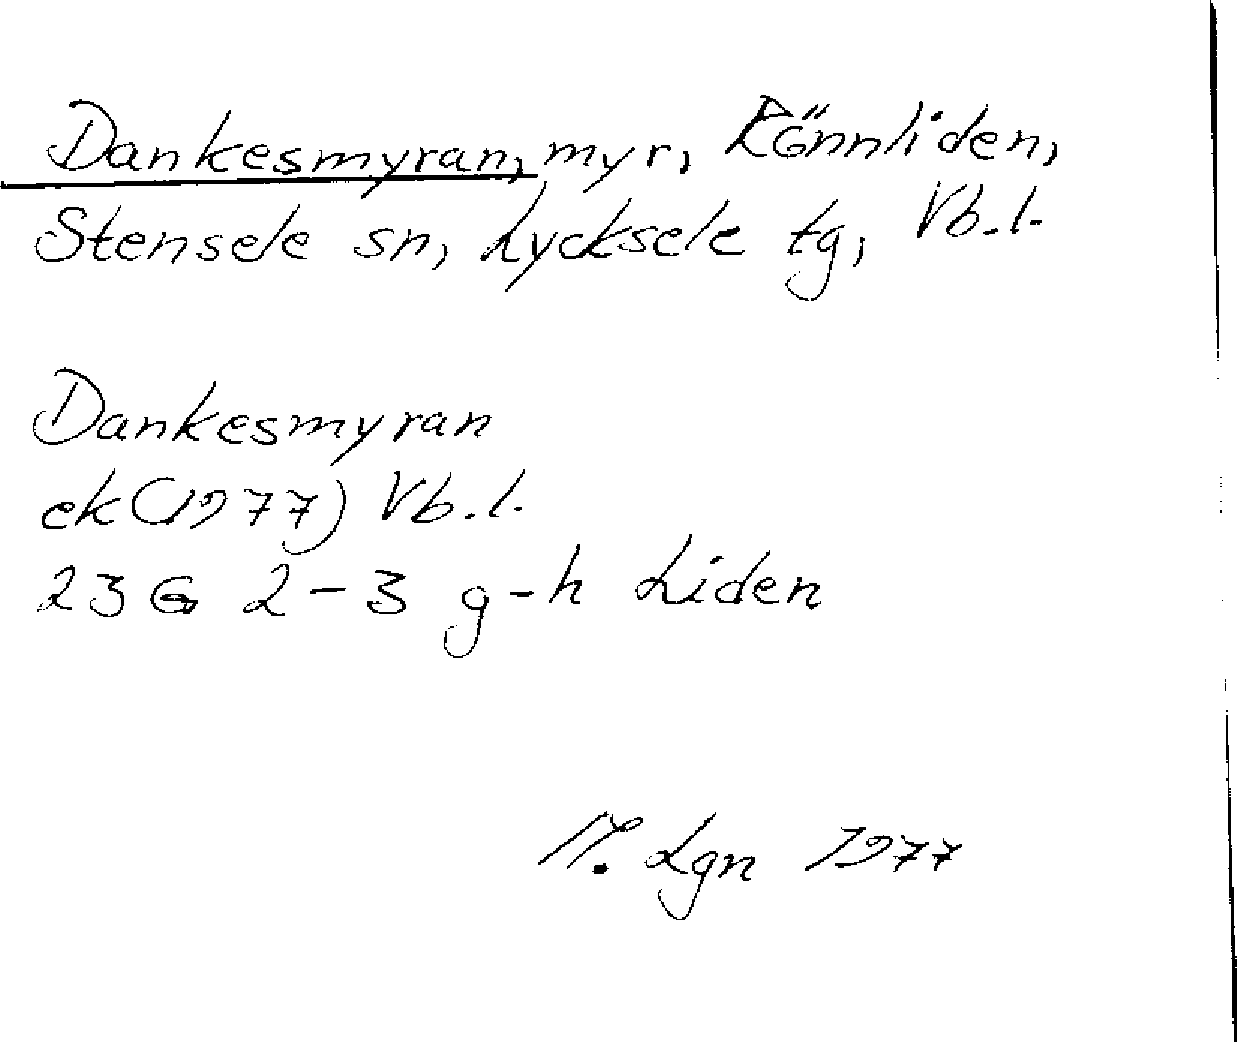 Dankesmyran, myr, Rönnliden,
Stensele sn, Lycksele tg, Vb.l.
Dankesmyran
ek (1977) Vb.l.
23 G 2-3 g-h Liden
Lgn 1977